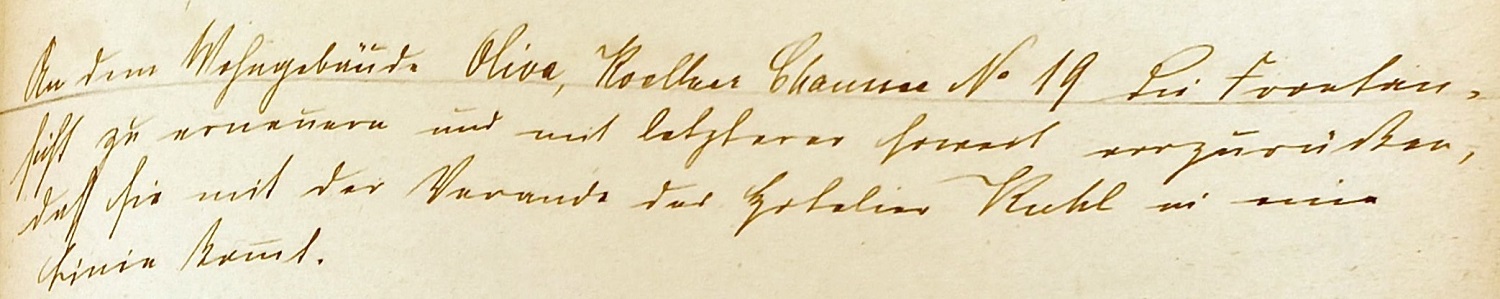 An dem Wohngebäude Oliva, Koellner Chaussee No 19 die Frontan-
sicht zu erneuern und mit letzterer soweit vorzurücken,
daß sie mit der Veranda des Hotelier Kuhl in eine
Linie kom̅t.